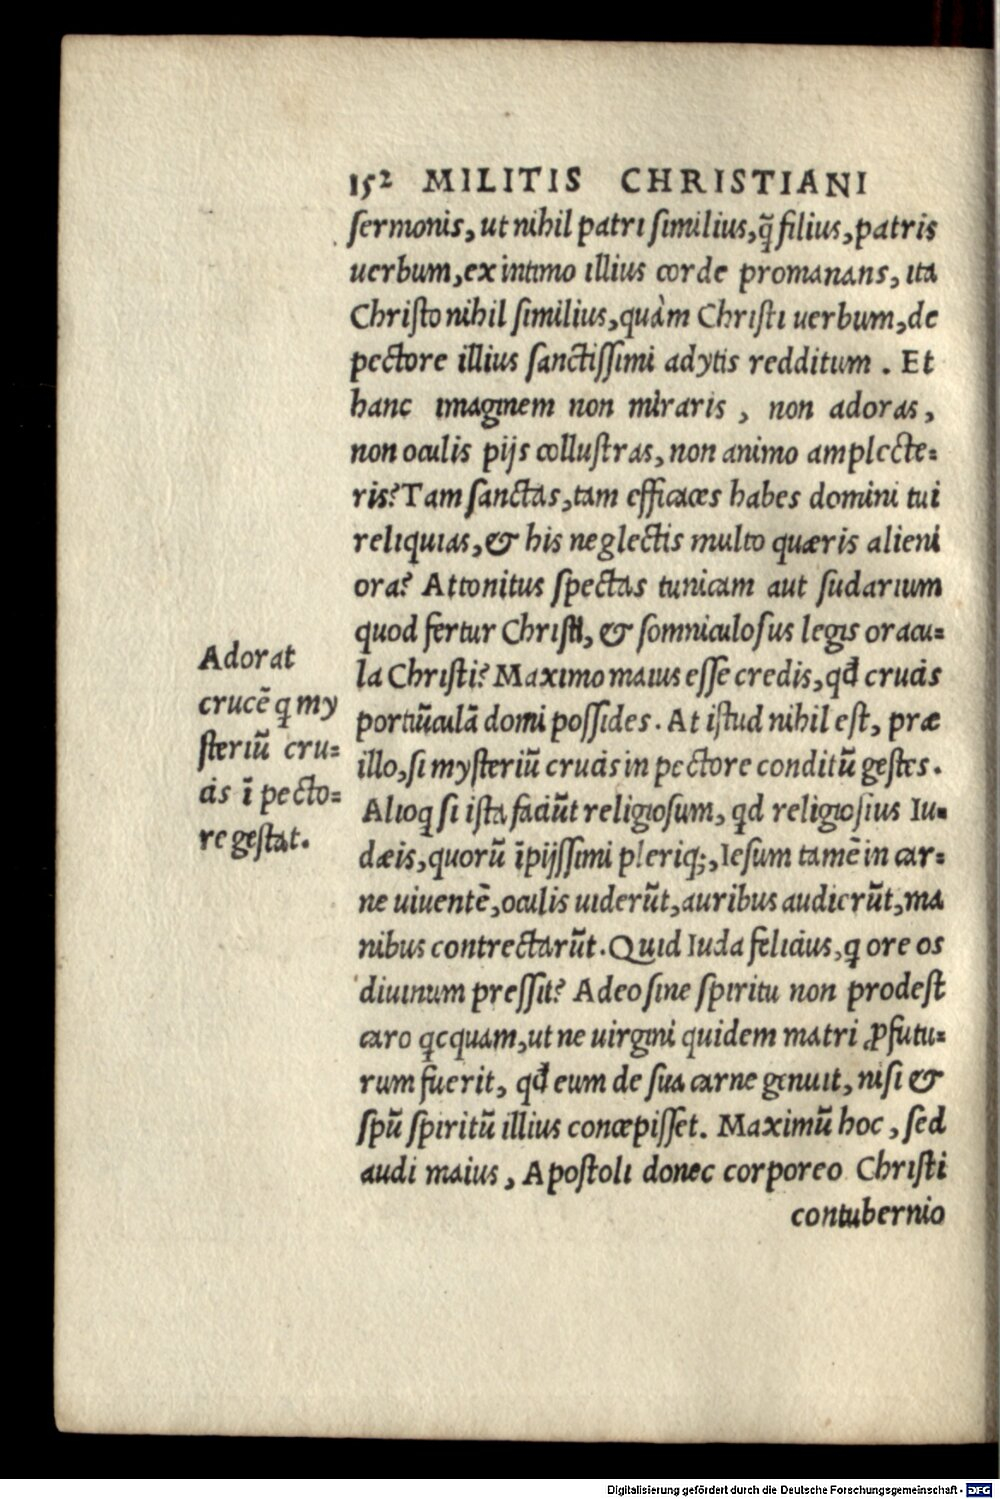 152 MILITIS CHRISTIANI
sermonis, ut nihil patri similius, q̃ filius, patris
uerbum, ex intimo illius corde promanans, ita
Christo nihil similius, quàm Christi uerbum, de
pectore illius sanctissimi adytis redditum. Et
hanc imaginem non miraris, non adoras,
non oculis pijs collustras, non animo amplecte=
ris? Tam sanctas, tam efficaces habes domini tui
reliquias, & his neglectis multo quæris alieni
ora? Attonitus spectas tunicam aut sudarium
quod fertur Christi, & somniculosus legis oracu=
la Christi? Maximo maius esse credis, qđ crucis
portiũculã domi possides. At istud nihil est, præ
illo, si mysteriũ crucis in pectore conditũ gestes.
Alioq si ista faciũt religiosum, qd religiosius Iu=
dæis, quorũ ĩpijssimi pleriq;, Iesum tamẽ in car=
ne uiuentẽ, oculis uiderũt, auribus audierũt, ma
nibus contrectarũt. Quid Iuda felicius, q ore os
diuinum pressit? Adeo sine spiritu non prodest
caro qcquam, ut ne uirgini quidem matri ꝓfutu=
rum fuerit, qđ eum de sua carne genuit, nisi &
spũ spiritũ illius concepisset. Maximũ hoc, sed
audi maius, Apostoli donec corporeo Christi
contubernio
Adorat
crucẽ q my
steriũ cru=
cis ĩ pecto=
re gestat.
Digitalisierung gefördert durch die Deutsche Forschungsgemeinschaft - DFG